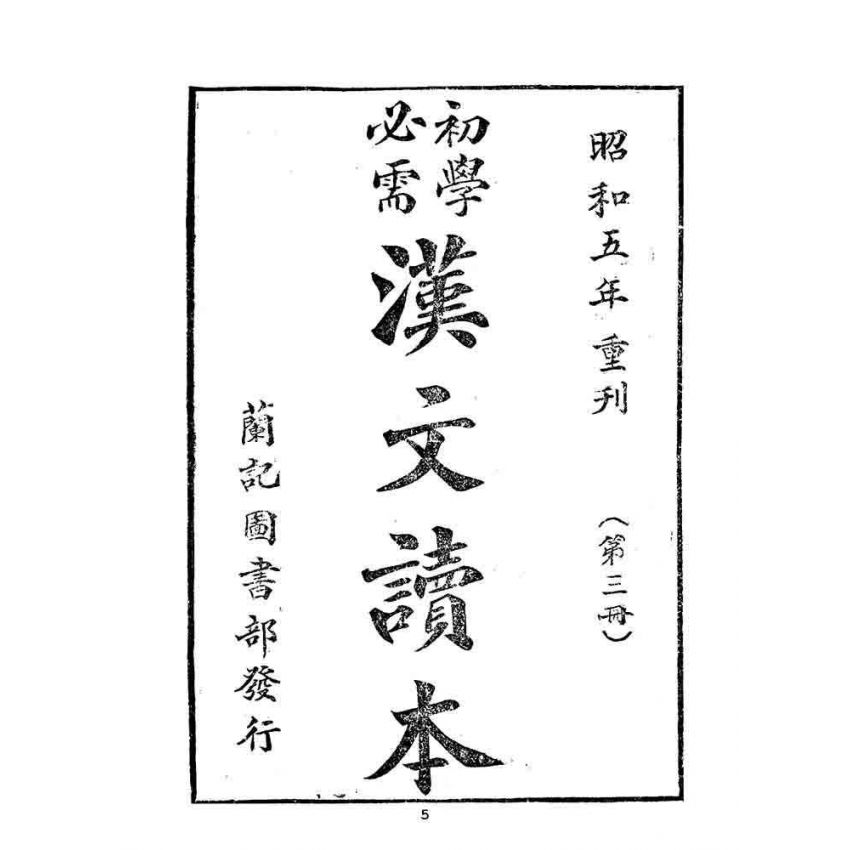 昭和五年重刊（第三冊）
初學
必需
漢文讀本
蘭記圖書部發行
5